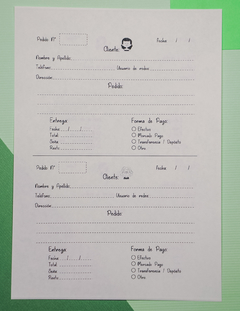 Pedido N°
Fecha / /
Cliente:
Nombre y Apellido:
Teléfono: Usuario de redes:
Dirección:
Pedido:
Entrega: Forma de Pago:
Fecha / / Efectivo
Total Mercado Pago
Seña Transferencia / Depósito
Resta Otro
Pedido N°
Fecha / /
Cliente:
Nombre y Apellido:
Teléfono: Usuario de redes:
Dirección:
Pedido:
Entrega: Forma de Pago:
Fecha / / Efectivo
Total Mercado Pago
Seña Transferencia / Depósito
Resta Otro